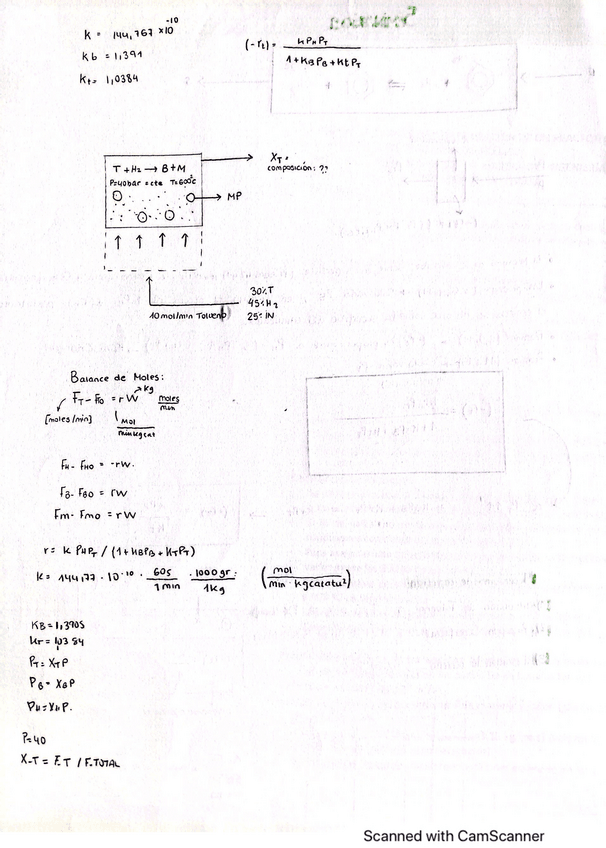 K = 144,767 x10⁻¹⁰
Kb = 1,391
Kt = 1,0384
(-rt) = K PH PT / 1+KB PB + Kt PT
T + H2 → B + M
P=40bar = cte T=600°C
MP
XT =
composición: ??
10 mol/min Tolueno
30% T
45% H2
25% IN
Balance de Moles:
FT - FTO = rW moles/min
kg
[moles/min]
mol/min kg cat
FH - FHO = -rW.
FB - FBO = rW
Fm - Fmo = rW
r = K PH PT / (1 + KB PB + KT PT)
K = 144,77 · 10⁻¹⁰ · 60s/1min · 1000gr./1kg (mol/min · kgcatatu²)
KB = 1,3905
KT = 1,0384
PT = XTP
PB = XBP
PH = XHP.
P=40
X-T = F.T / F.TOTAL
Scanned with CamScanner